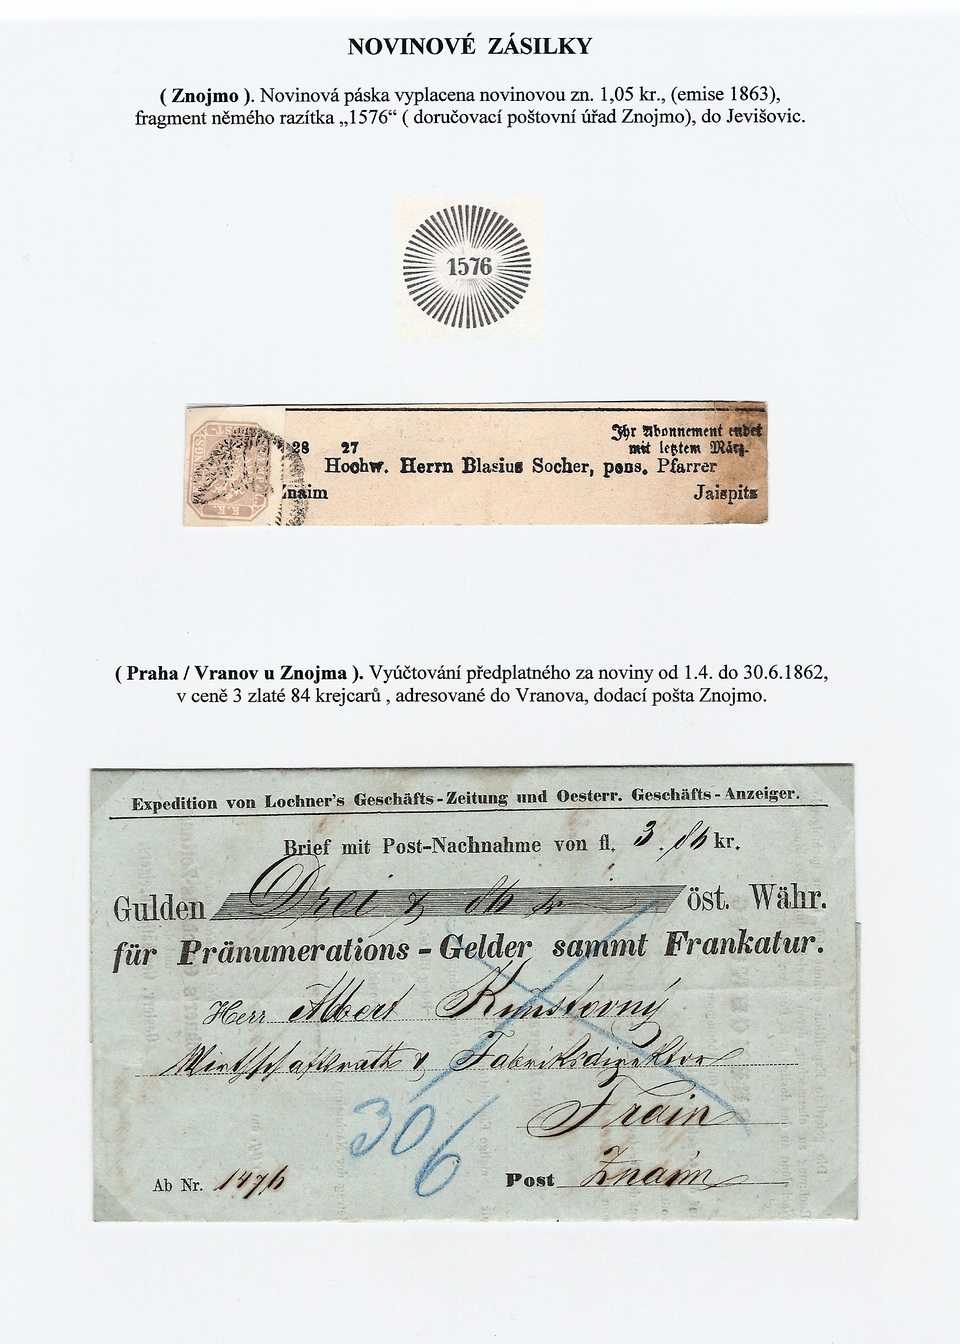 NOVINOVÉ ZÁSILKY
( Znojmo ). Novinová páska vyplacena novinovou zn. 1,05 kr., (emise 1863),
fragment němého razítka „1576“ ( doručovací poštovní úřad Znojmo), do Jevišovic.
1576
Ihr Abonnement endet
28 27 mit letztem März.
Hochw. Herrn Blasius Socher, pens. Pfarrer
Znaim Jaispitz
K. K.
( Praha / Vranov u Znojma ). Vyúčtování předplatného za noviny od 1.4. do 30.6.1862,
v ceně 3 zlaté 84 krejcarů , adresované do Vranova, dodací pošta Znojmo.
Expedition von Lochner's Geschäfts-Zeitung und Oesterr. Geschäfts-Anzeiger.
Brief mit Post-Nachnahme von fl. 3. 84 kr.
Gulden Drei & 84 kr öst. Währ.
für Pränumerations-Gelder sammt Frankatur.
Herr Albert
Wirthschaftsrath & Fabriksdirektor
Frain
30/6
Ab Nr. 1476 Post Znaim